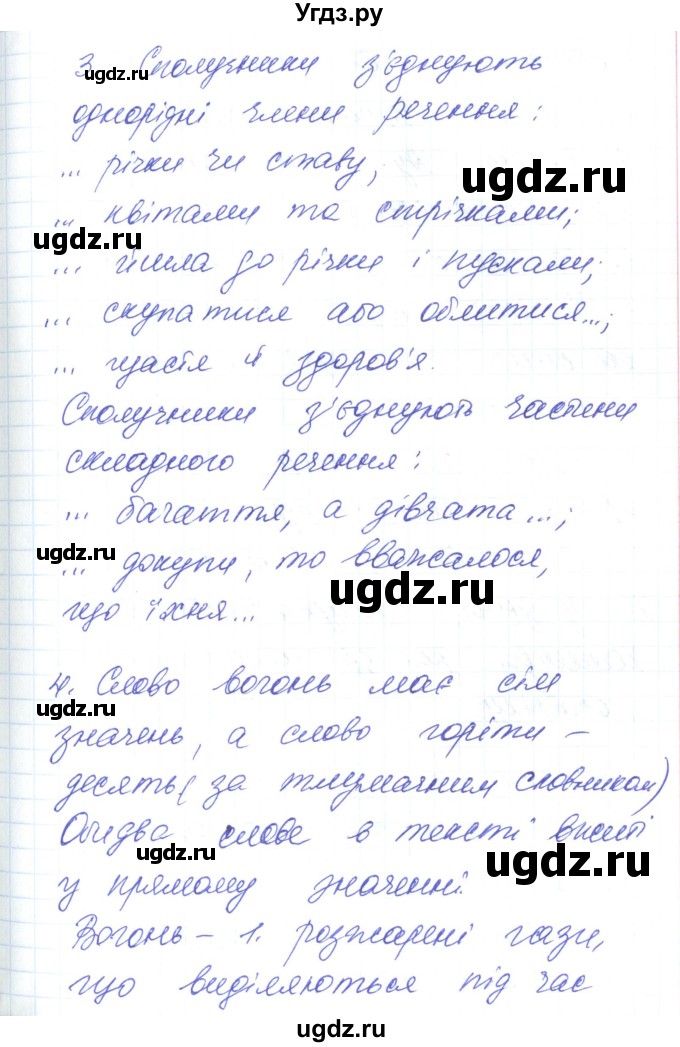 Угдз.ру
3. Сполучники з'єднують
ugdz.ru
однорідні члени речення:
... річки чи ставу,
ugdz.ru
... квітами та стрічками;
ugdz.ru
... йшла до річки і пускали;
... скупатися або облитися...;
... щастя й здоров'я.
ugdz.ru
Сполучники з'єднують частини
складного речення:
... багаття, а дівчата...;
ugdz.ru
... докупи, то вважалося,
ugdz.ru
що їхня...
4. Слово вогонь має сім
ugdz.ru
значень, а слово горіти –
десять (за тлумачним словником)
Обидва слове в тексті вжиті
ugdz.ru
ugdz.ru
у прямому значенні.
Вогонь – 1. розжарені гази,
що виділяються під час
ugdz.ru
ugdz.ru